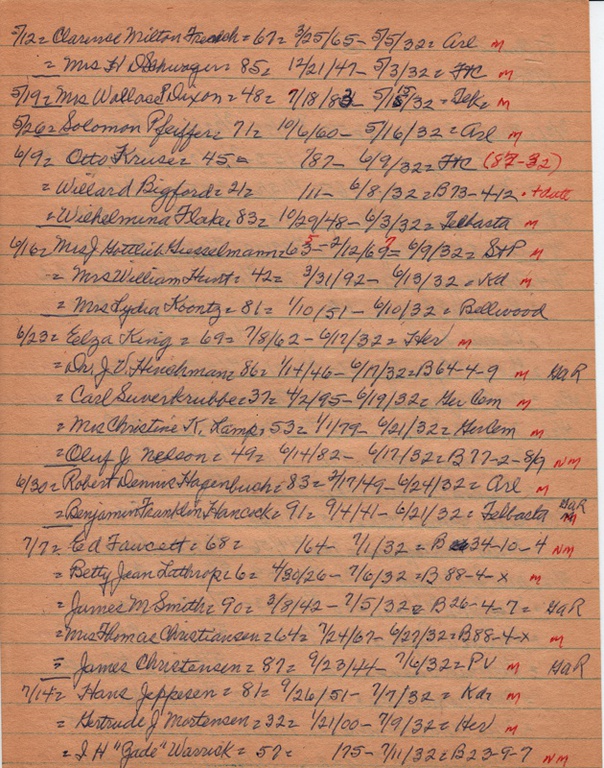 5/12 = Clarence Milton French = 67 = 3/25/65 - 5/5/32 = Arl M
= Mrs H D Schwager = 85 = 12/21/47 - 5/3/32 = FtC M
5/19 = Mrs Wallace P Dixon = 48 = 7/18/83 - 5/15/32 = Tek = M
5/26 = Solomon Pfeiffer = 71 = 10/6/60 - 5/16/32 = Arl M
6/9 = Otto Kruse = 45 = /87 - 6/9/32 = FtC (87-32)
= Willard Bigford = 21 = /11 - 6/8/32 = B73-4-12
= Wilhelmina Flake, 83 = 10/29/48 - 6/3/32 = Telbasta M
6/16 = Mrs J Gottlieb Giesselmann = 2/12/69 = 6/9/32 = StP M
= Mrs William Hunt = 42 = 3/31/92 - 6/13/32 = Kd M
= Mrs Lydia Koontz = 81 = 1/10/51 - 6/10/32 = Bellwood
6/23 = Eelza King = 69 = 7/8/62 - 6/17/32 = Her M
= Dr. J. V. Hinchman = 86 = 1/14/46 - 6/17/32 = B64-4-9 M GaR
= Carl Suverkrubbe = 37 = 4/2/95 - 6/19/32 = Ger Cem M
= Mrs Christine K. Kamp, 53 = 1/1/79 - 6/21/32 = Ger Cem M
= Oluf J. Nelson = 49 = 6/14/82 - 6/17/32 = B77-2-8/9 NM
6/30 = Robert Dennis Hagenbuch = 83 = 2/17/49 - 6/24/32 = Arl M
= Benjamin Franklin Hancock = 91 = 9/4/41 - 6/21/32 = Telbasta GaR M
7/7 = Ed Fawcett = 68 = /64 - 7/1/32 = B 34-10-4 NM
= Betty Jean Lathrop = 6 = 4/30/26 - 7/6/32 = B 88-4-x M
= James M Smith = 90 = 3/8/42 - 7/5/32 = B 26-4-7 = GaR
= Mrs Thomas Christiansen = 64 = 7/24/67 - 6/27/32 = B88-4-x M
= James Christensen = 87 = 9/23/44 - 7/6/32 = PV M GaR
7/14 = Hans Jeppesen = 81 = 9/26/51 - 7/7/32 = Kd = M
= Gertrude J Mortensen = 32 = 1/21/00 - 7/9/32 = Her M
= J H "Gade" Warrick = 57 = /75 - 7/11/32 = B23-9-7 NM